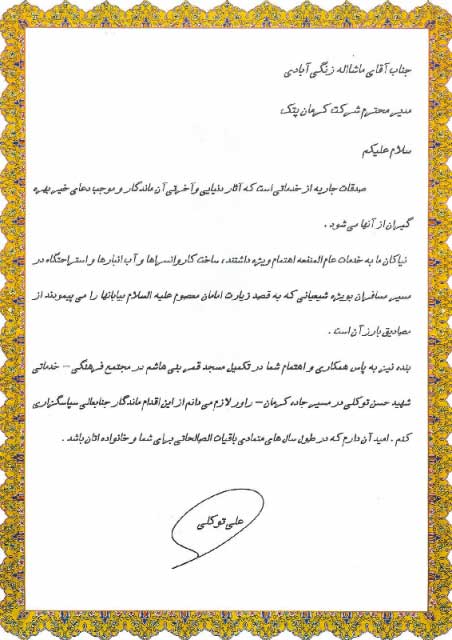 جناب آقای ماشااله زنگی آبادی
مدیر محترم شرکت کرمان پتک
سلام علیکم
صدقات جاریه از خدماتی است که آثار دنیایی و آخرتی آن ماندگار و موجب دعای خیر بهره
گیران از آنها می شود .
نیاکان ما به خدمات عام المنفعه اهتمام ویژه داشتند ، ساخت کاروانسراها و آب انبارها و استراحتگاه در
مسیر مسافران بویژه شیعیانی که به قصد زیارت امامان معصوم علیه السلام بیابانها را می پیمودند از
مصادیق بارز آن است .
بنده نیز به پاس همکاری و اهتمام شما در تکمیل مسجد قمر بنی هاشم در مجتمع فرهنگی – خدماتی
شهید حسن توکلی در مسیر جاده کرمان – راور لازم می دانم از این اقدام ماندگار جنابعالی سپاسگزاری
کنم . امید آن دارم که در طول سال های متمادی باقیات الصالحاتی برای شما و خانواده اتان باشد .
علی توکلی